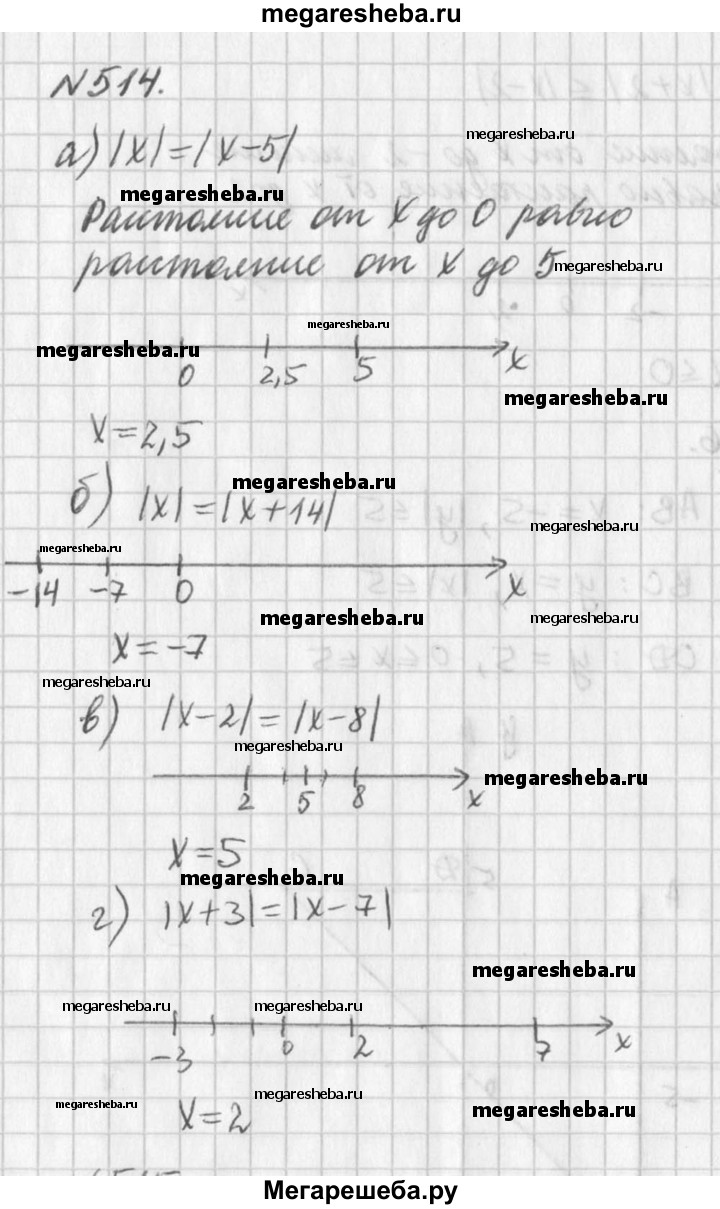 megaresheba.ru
№514.
а) |x|=|x-5|
megaresheba.ru
megaresheba.ru
Расстояние от x до 0 равно
расстояние от x до 5
megaresheba.ru
megaresheba.ru
megaresheba.ru
0 2,5 5 x
megaresheba.ru
x=2,5
megaresheba.ru
б) |x|=|x+14|
megaresheba.ru
megaresheba.ru
-14 -7 0 x
megaresheba.ru
megaresheba.ru
x=-7
megaresheba.ru
в) |x-2|=|x-8|
megaresheba.ru
megaresheba.ru
2 5 8 x
x=5
megaresheba.ru
г) |x+3|=|x-7|
megaresheba.ru
megaresheba.ru
megaresheba.ru
-3 0 2 7 x
megaresheba.ru
megaresheba.ru
x=2
megaresheba.ru
Мегарешеба.ру